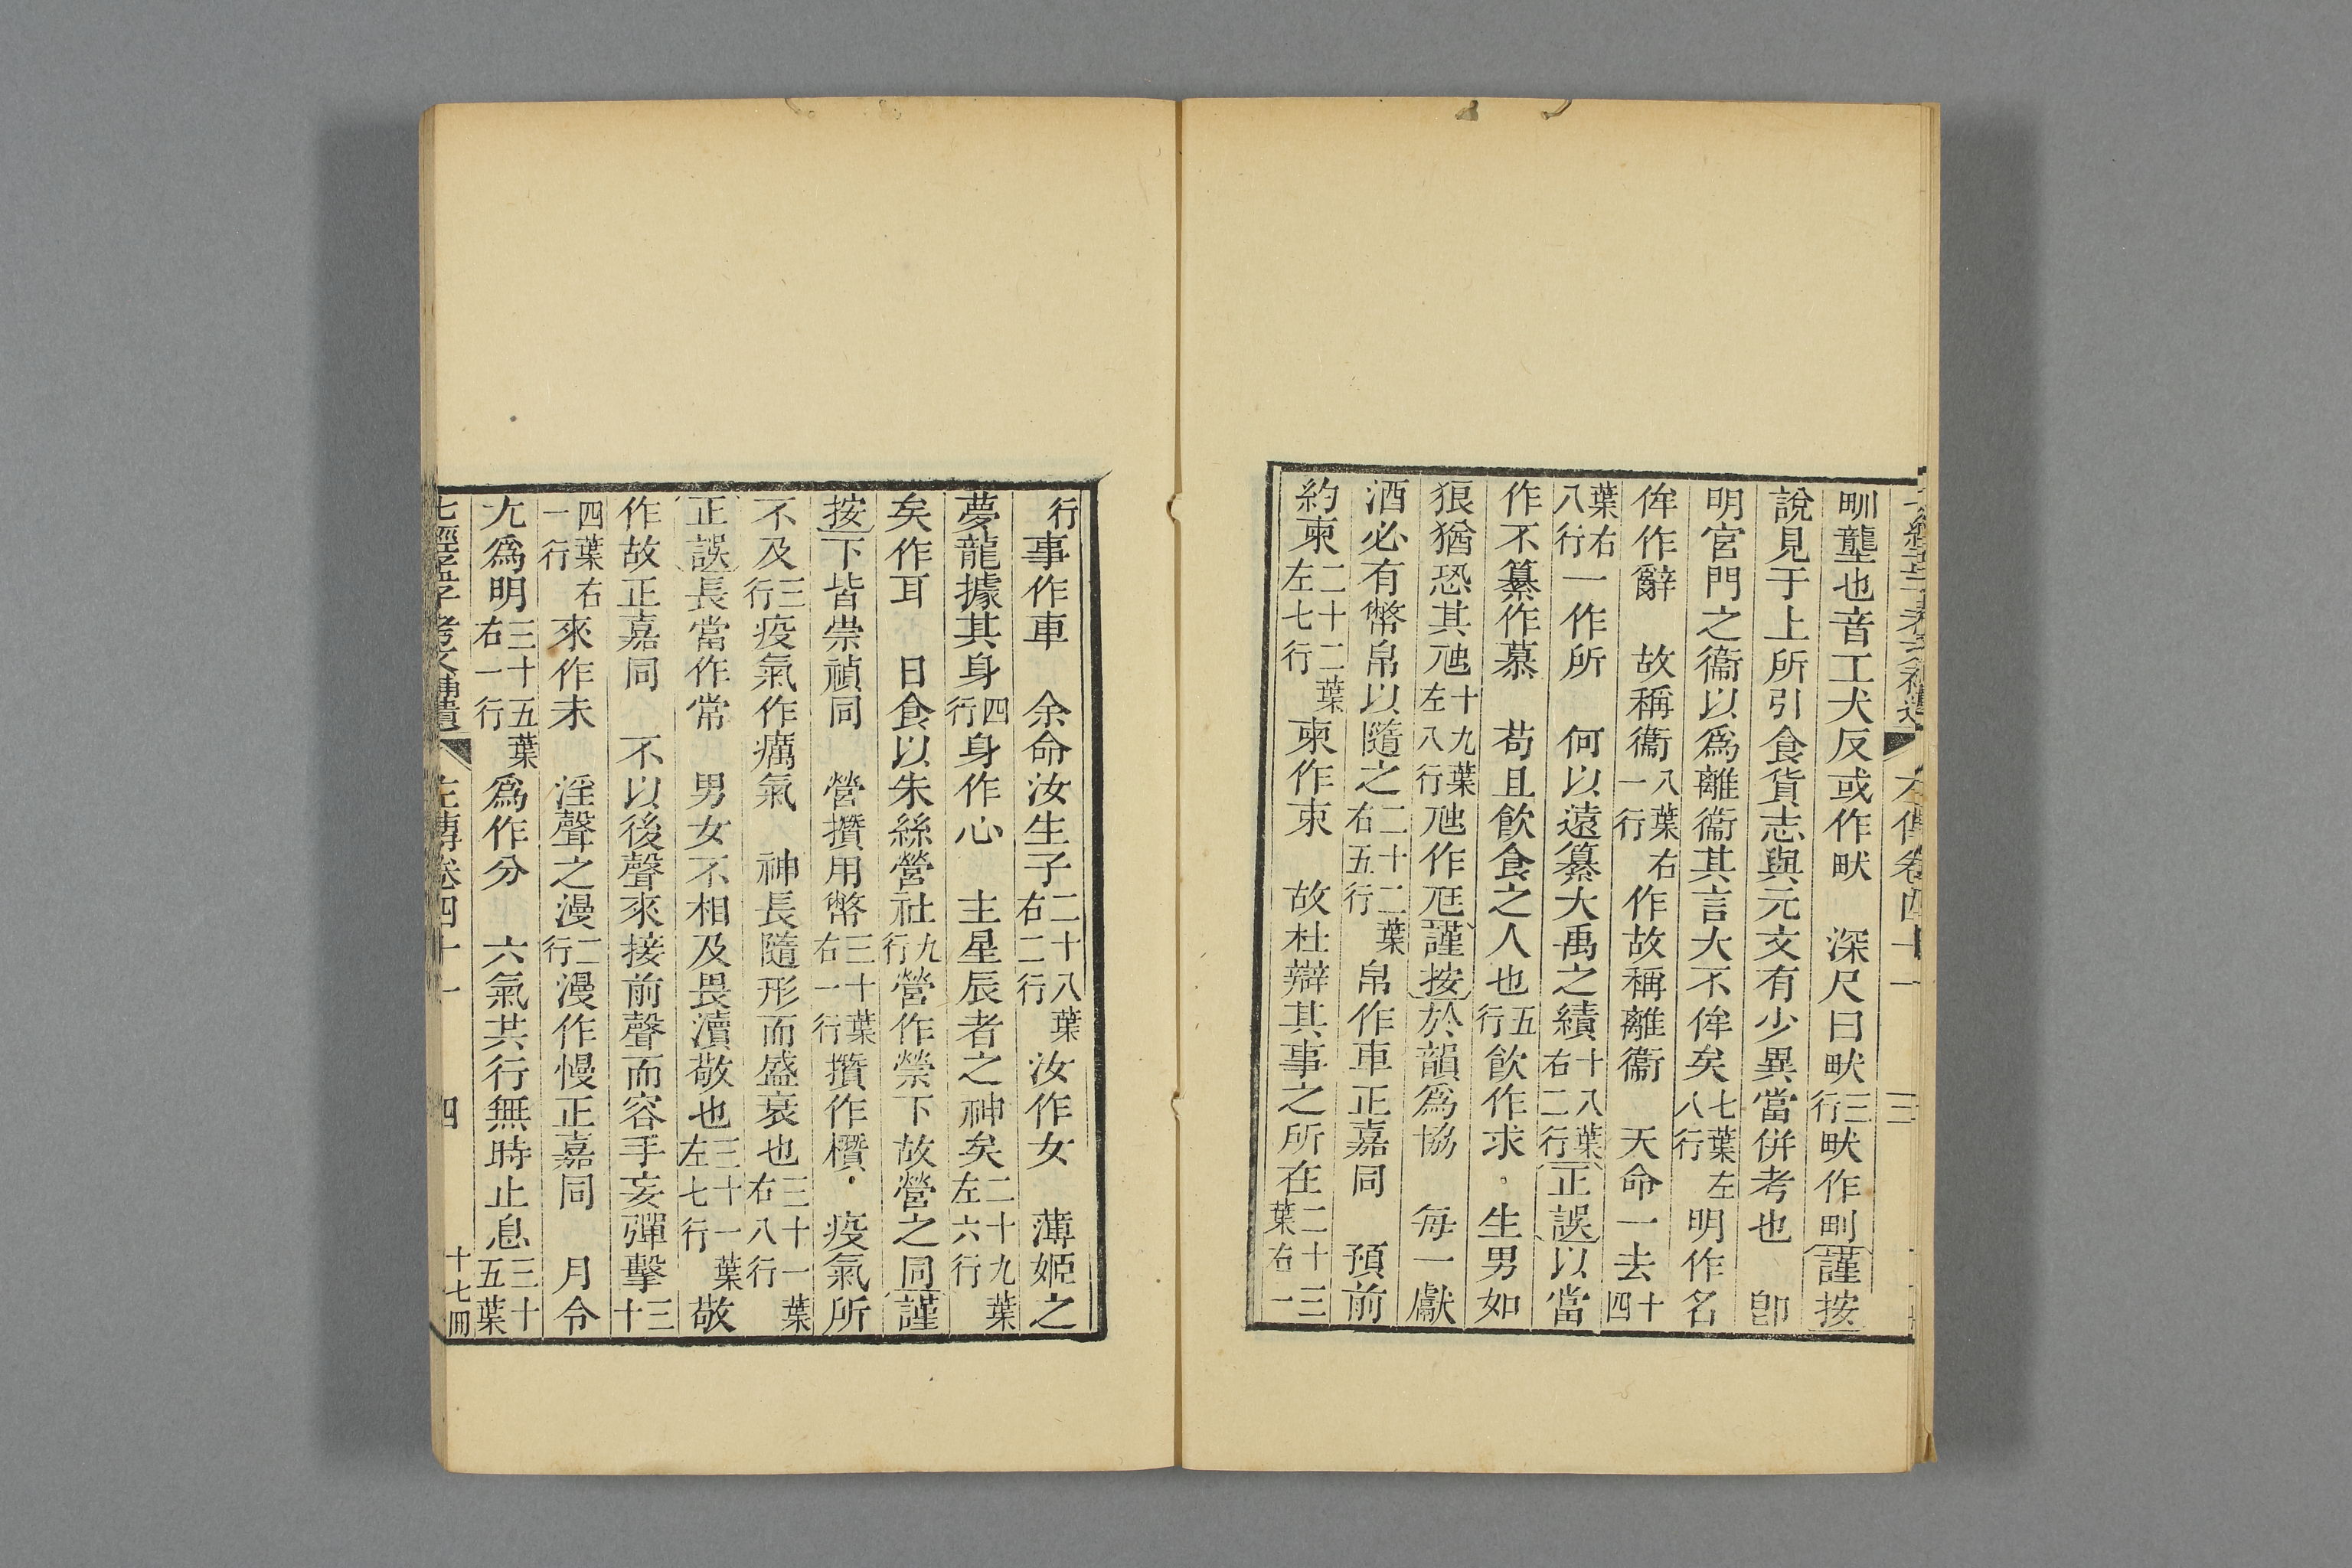 甽壟也音工犬反或作畎　深尺曰畎三行畎作甽謹按
說見于上所引食貨志與元文有少異當併考也　卽
明宮門之衞以爲離衞其言大不侔矣七葉左八行明作名
侔作辭　故稱衞八葉右一行作故稱離衞　天命一去十四
葉右八行一作所　何以遠纂大禹之績十八葉右二行正誤以當
作不纂作慕　苟且飲食之人也五行飲作求。生男如
狼猶恐其尪十九葉左八行尪作尫謹按於韻爲協　每一獻
酒必有幣帛以隨之二十二葉右五行帛作車正嘉同　預前
約柬二十二葉左七行柬作束　故杜辯其事之所在二十三葉右一
行事作車　余命汝生子二十八葉右二行汝作女　薄姬之
夢龍據其身四行身作心　主星辰者之神矣二十九葉左六行
矣作耳　日食以朱絲營社九行營作禜下故營之同謹
按下皆崇禎同　營攢用幣三十葉右一行攢作欑。疫氣所
不及三行疫氣作癘氣　神長隨形而盛衰也三十一葉右八行
正誤長當作常　男女不相及畏瀆敬也三十一葉左七行敬
作故正嘉同　不以後聲來接前聲而容手妄彈擊三十
四葉右一行來作未　淫聲之漫二行漫作慢正嘉同　月令
尢爲明三十五葉右一行爲作分　六氣共行無時止息三十五葉
七經孟子考文補遺　左傳卷四十一　四　十七冊